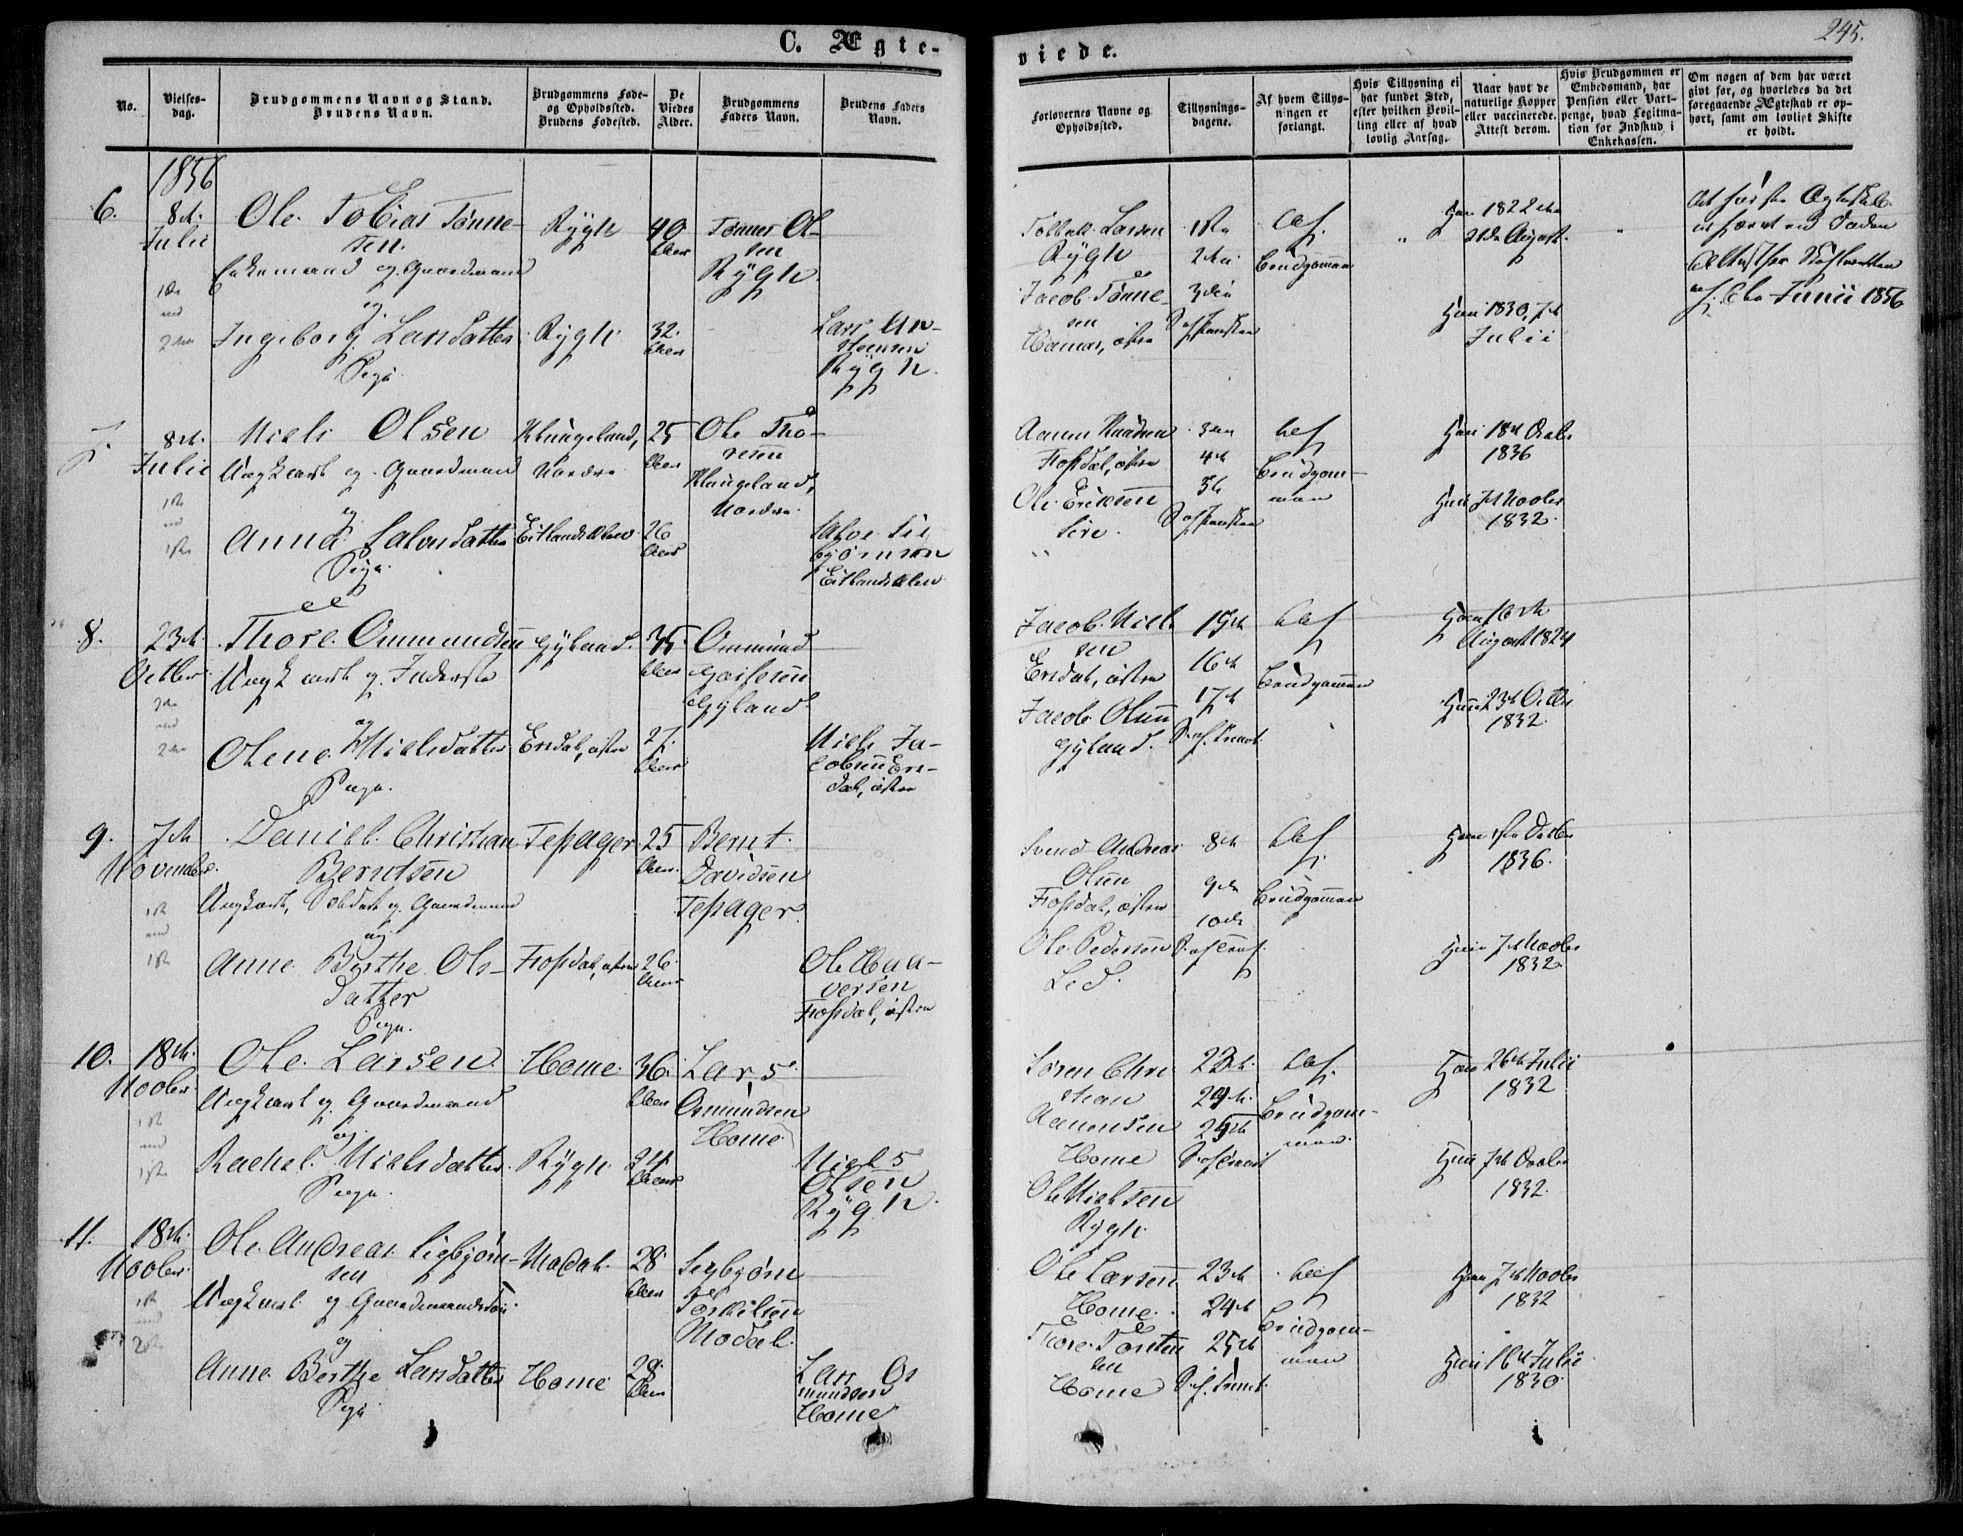 C. Ægte-
viede.
245.
No.
Vielses-
dag.
Brudgommens Navn og Stand.
Brudens Navn.
Brudgommens Føde-
og Opholdssted.
Brudens Fødested.
De
Viedes
Alder.
Brudgommens
Faders Navn.
Brudens Faders
Navn.
Forlovernes Navne og
Opholdssted.
Tillysnings-
dagene.
Af hvem Tillys-
ningen er
forlangt.
Hvis Tillysning ei
har fundet Sted,
efter hvilken Bevil-
ling eller af hvad
lovlig Aarsag.
Naar havt de
naturlige Kopper
eller vaccinerede.
Attest derom.
Hvis Brudgommen er
Embedsmand, har
Pension eller Vart-
penge, hvad Legitima-
tion for Indskud i
Enkekassen.
Om nogen af dem har været
givt før, og hvorledes da det
foregaaende Ægteskab er op-
hørt, samt om lovligt Skifte
er holdt.
1856
6.
8de
Julii
Ole Tobias Tønne-
sen
Enkemand og Gaardmand
og
Ingeborg Larsdatter
Pige
Rygh
Rygh
40
Aar
32
Aar
Tønnes Ol-
sen
Rygh
Lars An-
stensen
Rygh
Tollak Larsen
Rygh
Jacob Tønne-
sen
1ste
2den
3die
af
Brudgommen
Han 1822 den
21de August
Hun 1830, 7de
Julii
Juni 1856
7.
8de
Julii
Niels Olsen
Ungkarl og Gaardmand
og
Anna Salvesdatter
Pige
Klungeland,
Nordre
25
Aar
26
Aar
Ole Tho-
resen
Klungeland,
Nordre
Salve Sig
bjørnsen
Aanen Knudsen
Fossdal, østre
Ole Eriksen
Sire
3die
4de
5te
af
Brudgom-
men
Han 18de Octbr
1836
Hun 7de Novbr
1832
8.
23de
Octbr
Thore Ommundsen
Ungkarl og Inderste
og
Olene Nielsdatter
Pige
Gyland
Ersdal, østre
35
Aar
27
Aar
Ommund
Gyland
Niels Ja-
cobsen Ers-
dal, østre
Jacob Niel-
sen
Ersdal, østre
Jacob Olsen
Gyland
15de
16de
17de
af
Brudgommen
Han 16de
August 1824
Hun 23de Octbr
1832
9.
7de
November
Daniel Christian
Berntsen
Ungkarl, Soldat og Gaardmand
og
Anne Berthe Ols-
datter
Pige
Tessager
Fossdal, østre
25
Aar
26
Aar
Bernt
Davidsen
Tessager
Ole Haa-
versen
Fossdal, østre
Svend Andreas
Olsen
Fossdal, østre
Ole Pedersen
Led
8de
9de
10de
af
Brudgommen
1836
Hun 7de Novbr
1832
10.
18de
Novbr
Ole Larsen
Ungkarl og Gaardmand
og
Rachel Nielsdatter
Pige
Home
Rygh
36
Aar
24
Aar
Lars
Osmundsen
Home
Niels
Olsen
Rygh
Søren Chri
stian
Aanensen
Home
Ole Nielsen
Rygh
23de
24de
25de
af
Brudgom-
men
Han 26de Julii
1832
Hun 7de Octbr
1832
11.
18de
Novbr
Ole Andreas Sigbjørn-
sen
Ungkarl og Gaardmandssøn
og
Anne Berthe Larsdatter
Pige
Modal
Home
28
Aar
28
Aar
Sigbjørn
Torkilsen
Modal
Lars Os
mundsen
Home
Ole Larsen
Home
Thore Torsten
sen
Home
23de
24de
25de
af
Brudgom-
men
Han 7de Novbr
1832
Hun 16de Julii
1830